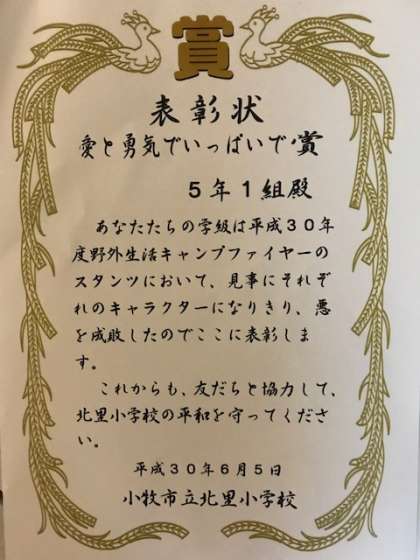 賞
表彰状
愛と勇気でいっぱいで賞
5年1組殿
あなたたちの学級は平成30年
度野外生活キャンプファイヤーの
スタンツにおいて、見事にそれぞ
れのキャラクターになりきり、悪
を成敗したのでここに表彰しま
す。
これからも、友だちと協力して、
北里小学校の平和を守ってくださ
い。
平成30年6月5日
小牧市立北里小学校